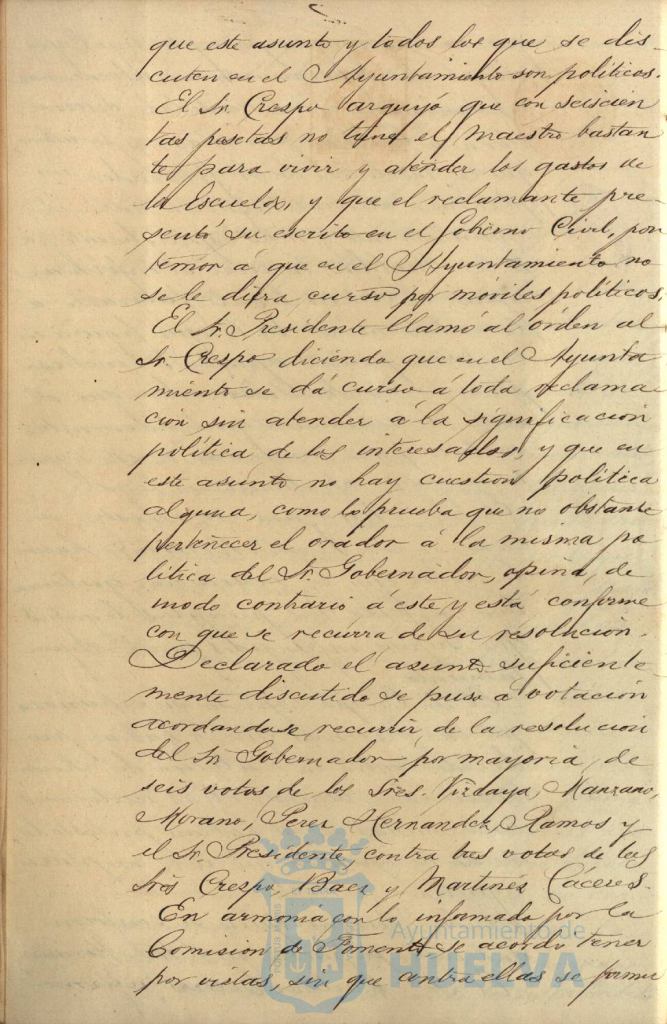 que este asunto y todos los que se dis-
cuten en el Ayuntamiento son politicos.
El Sr. Crespo arguyó que con seiscien
tas pesetas no tiene el maestro bastan
te para vivir y atender los gastos de
la Escuela, y que el reclamante pre-
sentó su escrito en el Gobierno Civil, por
temor á que en el Ayuntamiento no
se le diera curso por móviles políticos.
El Sr. Presidente llamó al órden al
Sr. Crespo diciendo que en el Ayunta
miento se dá curso á toda reclama
ción sin atender á la significacion
política de los interesados, y que en
este asunto no hay cuestion politica
alguna, como lo prueba que no obstante
pertenecer el orador á la misma po
litica del Sr. Gobernador, opina, de
modo contrario á este y está conforme
con que se recurra de su resolución.
Declarado el asunto suficiente
mente discutido se puso á votación
acordandose recurrir de la resolucion
del Sr. Gobernador por mayoria, de
seis votos de los Sres. Vizcaya, Manzano,
Morano, Perez Hernandez, Ramos y
el Sr. Presidente, contra tres votos de los
Sres Crespo, Baez y Martinez Cáceres.
En armonia con lo informado por la
Comision de Fomento se acordó tener
por vistas, sin que contra ellas se
Ayuntamiento de
HUELVA